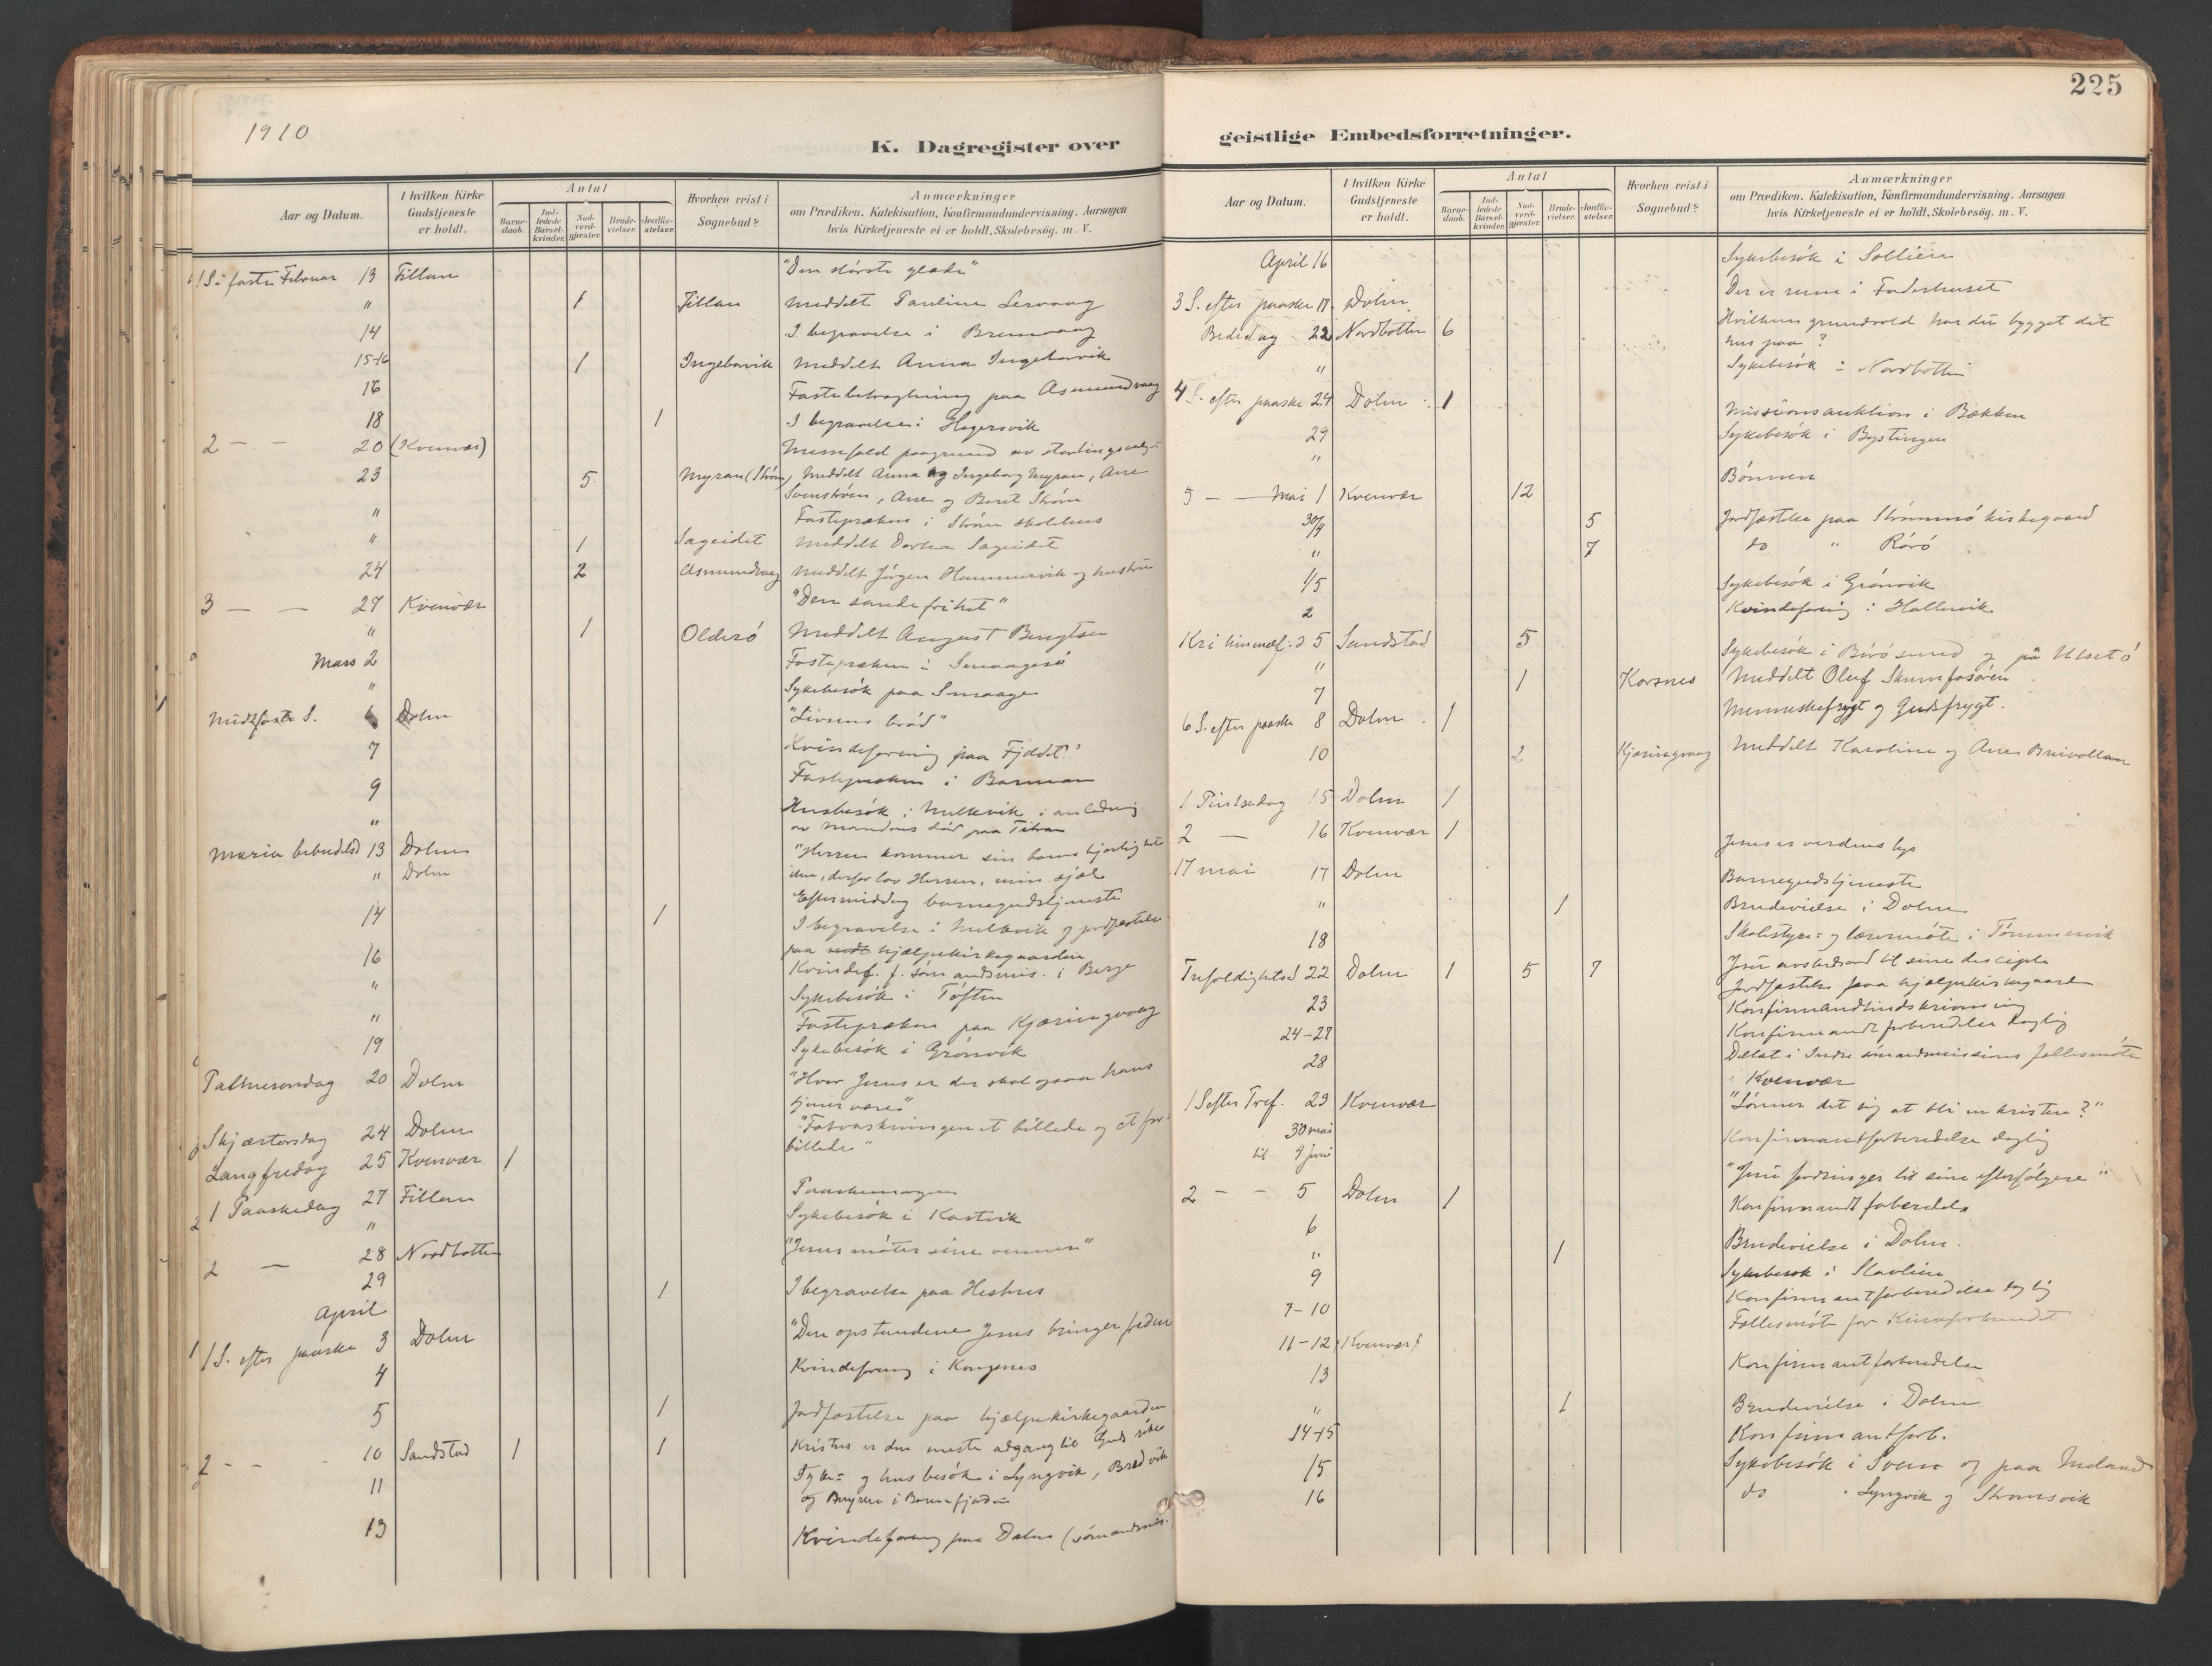 225
1910
K. Dagregister over
geistlige Embedsforretninger.
Aar og Datum.
I hvilken Kirke Gudstjeneste er holdt.
Antal
Barne-daab.
Ind-ledede Barsel-kvinder.
Nad-verd-gjæster.
Brude-vielser.
Jordfæ-stelser.
Hvorhen reist i Sognebud?
Anmærkninger
om Prædiken, Katekisation, Konfirmandundervisning, Aarsagen
hvis Kirketjeneste ei er holdt, Skolebesøg. m. V.
1 S i faste Februar 13 Fillan "Den største glæde"
" 1 Fillan Meddelt Pauline
14 I begravelse i
15-16 1 Ingeborvik Meddelt Anna Ingeborvik
16 Fastebetragtning paa Asmundvaag
18 1 I begravelse i Hegersvik
2 — — 20 (Kvenvær) Messefald paagrund av
23 5 Myran (Strøm) Meddelt Anna og Ingeborg Myran, Ane
Svenstrøen, Ane og Beret Strøm
" Fastepræken i Strøm skolehus
" 1 Sageidet Meddelt Dortea Sageidet
24 2 Asmundvaag Meddelt Jørgen Hammervik og hustru
3 — — 27 Kvenvær "Den sande frihet"
" 1 Oldesö Meddelt August Bengtsen
Mars 2 Fastepræken i
" Sykebesök paa Smaage
Midtfaste S. 6 Dolm "Livsens bröd"
7 Kvindeforening paa Fjeldet
9 Fastepræken i Barman
" Husbesök i Melkvik i anledning
av mandens död paa Titran
Maria bebudelsd 13 Dolm "Herren kommer sin
" Dolm ihu, derfor lov Herren, min sjæl
Eftermiddag barnegudstjeneste
14 1 I begravelse i Melkvik og jordfæstelse
paa hjælpekirkegaarden
16 Kvindef. f. sømandsmis. i Berge
" Sykebesök i Töften
" Fastepræken paa Kjæringvaag
19 Sykebesök i Grönvik
Palmesøndag 20 Dolm "Hvor Jesus er der skal ogsaa hans
tjener være"
Skjærtorsdag 24 Dolm "Fotvaskningen et billede og et for-
billede"
Langfredag 25 Kvenvær 1
1 Paaskedag 27 Fillan Paaskemorgen
" Sykebesök i Kastvik
2 — 28 Nordbotten "Jesus möter sine venner"
29 1 I begravelse paa Hestnes
April
1 S. efter paaske 3 Dolm "Den opstandene Jesus bringer freden
4 Kvindeforening i Kongenes
5 1 Jordfæstelse paa hjælpekirkegaarden
2 - - 10 Sandstad 1 1 Kristus er den eneste adgang til Guds rike
11 Syke- og husbesök i Lyngvik, Bredvik
og Burøen i Barmfjorden
13 Kvindeforening paa Dolm (sömandsmis.)
Aar og Datum.
I hvilken Kirke Gudstjeneste er holdt.
Antal
Barne-daab.
Ind-ledede Barsel-kvinder.
Nad-verd-gjæster.
Brude-vielser.
Jordfæ-stelser.
Hvorhen reist i Sognebud?
Anmærkninger
om Prædiken, Katekisation, Konfirmandundervisning, Aarsagen
hvis Kirketjeneste ei er holdt, Skolebesøg. m. V.
April 16 Sykebesök i Sollien
3 S. efter paaske 17 Dolm Der er rum i Faderhuset
Bededag 22 Nordbotten 6 Hvilken grundvold har du bygget dit
hus paa?
" Sykebesök i Nordbotten
4 S. efter paaske 24 Dolm 1
29 Missionsauktion i Bækken
" Sykebesök i Bystingen
5 — — Mai 1 Kvenvær 12 Bönnen
30/4 5 Jordfæstelse paa Strömmö kirkegaard
" 7 do " Rörö
1/5 Sykebesök i Grönvik
2 Kvindeforening i Hallervik
Kri himmelf.d 5 Sandstad 5
" Sykebesök i Börösund og på Ulsetö
7 1 Korsnes Meddelt Oluf
6 S. efter paaske 8 Dolm 1 Menneskefrygt og Gudsfrygt.
10 2 Kjæringvaag Meddelt Karoline og Ane Breivollan
1 Pintsedag 15 Dolm 1
2 — 16 Kvenvær 1 Jesus er verdens lys
17 mai 17 Dolm Barnegudstjeneste
" 1 Brudevielse i Dolm
18 Skolestyre- og læsermöte i Tömmervik
Trefoldighetsd 22 Dolm 1 5 7 Jesu avskedsord til sine disciple
Jordfæstelse paa hjælpekirkegaarden
23 Konfirmandindskrivning
24-27 Konfirmandtforberedelse daglig
28 Deltat i Indre sömandsmissions fellesmöte
i Kvenvær
1 S efter Tref. 29 Kvenvær "Lönner det sig at bli en kristen?"
30 mai
til 4 juni Konfirmantforberedelse daglig
2 - - 5 Dolm 1 "Jesu fordringer til sine efterfölgere"
6 Konfirmandtforberedelse
" 1 Brudevielse i Dolm.
9 Sykebesök i Slavlien
7-10 Konfirmantforberedelse daglig
11-12 (Kvenvær) Fellesmöte for Kinaforbundet
13 Konfirmantforberedelse
" 1 Brudevielse i Dolm
14-15 Konfirmantforb.
15 Sykebesök i og paa
16 do " Lyngvik og Strömsvik